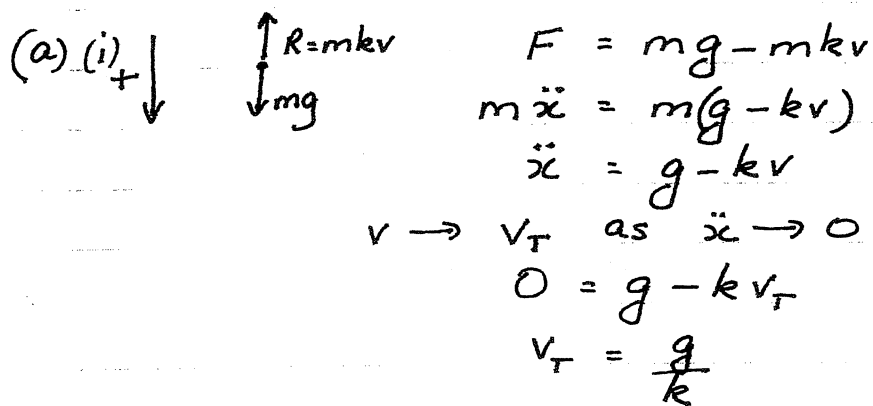 (a) (i) + ↓ ↑ R = mkv F = mg - mkv
↓ mg mẍ = m(g - kv)
ẍ = g - kv
v → v_T as ẍ → 0
0 = g - kv_T
v_T = g/k